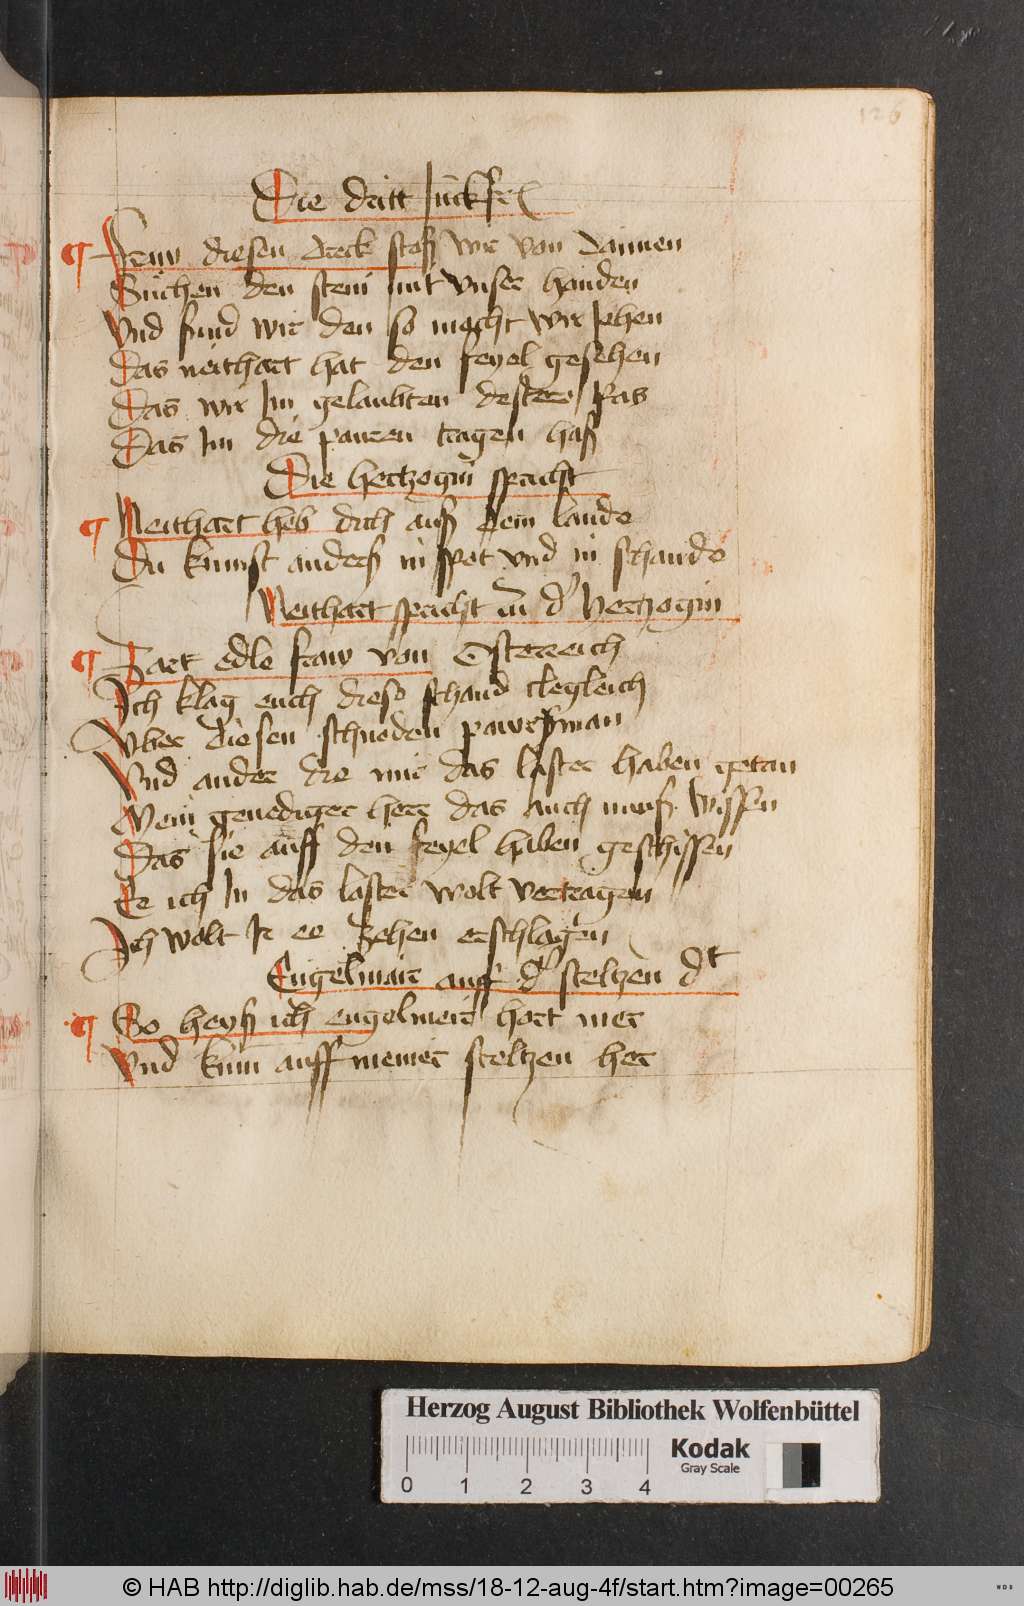 126
Die dritt Junckfr
Fraw diesen dreck stoß wir von dannen
Suchen den stein mit vnser handen
Vnd find wir den so mocht wir jehen
Das neithart hat den feyel gesehen
Das wir Im gelaubten dester pas
Das Im die pauren tragen haß
Die hertzogin spricht
Neithart heb dich auß dem lande
Du kumst anders in spot vnd in schande
Neithart spricht zu d' hertzogin
Zart edle fraw von Osterreich
Ich klag euch diese schand clegleich
Vber diesen schnoden pawrsman
Vnd ander die mir das laster haben getan
Mein genediger herr das auch muß wissen
Das sie auff den feyel haben geschissen
Ee ich In das laster wolt vertragen
Ich wolt Ir ee zehen erschlagen
Engelmair auff d' steltzen dt
So heyß ich engelmeir hort mer
Vnd kum auff meiner steltzen her
Herzog August Bibliothek Wolfenbüttel
Kodak
Gray Scale
0 1 2 3 4
© HAB http://diglib.hab.de/mss/18-12-aug-4f/start.htm?image=00265